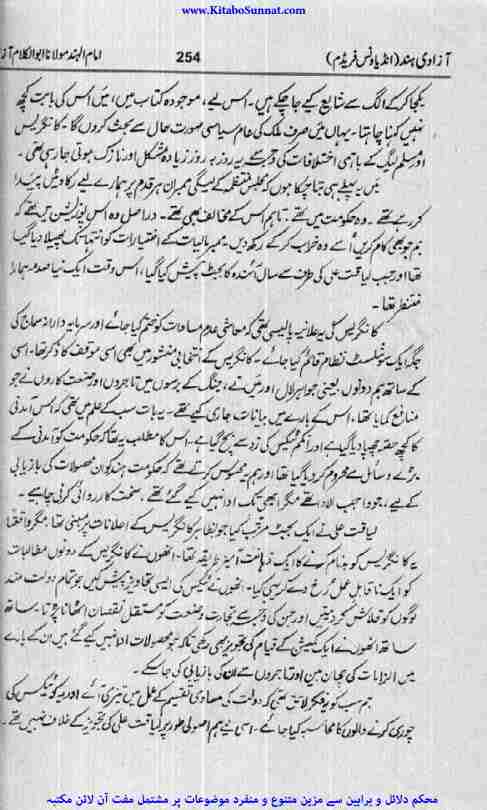 www.KitaboSunnat.com
آزادی ہند (انڈیا ونس فریڈم) 254 امام الہند مولانا ابوالکلام آزا
یکجا کرکے الگ سے شایع کیے جاچکے ہیں۔ اس لیے، موجودہ کتاب میں، میں اُس کی بابت کچھ
نہیں کہنا چاہتا۔ یہاں میں صرف ملک کی عام سیاسی صورت حال سے بحث کروں گا۔ کانگریس
اور مسلم لیگ کے باہمی اختلافات کی وجہ سے یہ روز بہ روز زیادہ مشکل اور نازک ہوتی جارہی تھی۔
میں پہلے ہی بتا چکا ہوں کہ مجلس منتظمہ کے لیگی ممبران ہر قدم پر ہمارے لیے رکاوٹیں پیدا
کر رہے تھے۔ وہ حکومت میں تھے، تاہم اس کے مخالف بھی تھے۔ دراصل وہ اس پوزیشن میں تھے کہ
ہم جو بھی کام کریں اُسے وہ خراب کرکے رکھ دیں۔ ممبر مالیات کے اختیارات کو انتہا تک پھیلا دیا گیا
تھا اور جب لیاقت علی کی طرف سے سال آئندہ کا بجٹ پیش کیا گیا، اُس وقت ایک نیا صدمہ ہمارا
منتظر تھا۔
کانگریس کی یہ علانیہ پالیسی تھی کہ معاشی عدم مساوات کو ختم کیا جائے اور سرمایہ دارانہ سماج کی
جگہ ایک سوشلسٹ نظام قائم کیا جائے۔ کانگریس کے انتخابی منشور میں بھی اسی موقف کا ذکر تھا۔ اسی
کے ساتھ ہم دونوں یعنی جواہر لال اور میں نے، جنگ کے برسوں میں تاجروں اور صنعت کاروں نے جو
منافع کمایا تھا، اس کے بارے میں بیانات جاری کیے تھے۔ یہ بات سب کے علم میں تھی کہ اس آمدنی
کا کچھ حصہ چھپا دیا گیا ہے اور انکم ٹیکس کی زد سے بچ گیا ہے۔ اس کا مطلب یہ تھا کہ حکومت کو آمدنی کے
بڑے وسائل سے محروم کر دیا گیا تھا اور ہم یہ محسوس کرتے تھے کہ حکومت ہند کو ان محصولات کی بازیابی
کے لیے، جو واجب الادا تھے مگر ابھی تک ادا نہیں کیے گئے تھے، سخت کارروائی کرنی چاہیے۔
لیاقت علی نے ایک بجٹ مرتب کیا جو بظاہر کانگریس کے اعلانات پر مبنی تھا، مگر واقعتاً
یہ کانگریس کو بدنام کرنے کا ایک ذہانت آمیز طریقہ تھا۔ انھوں نے کانگریس کے دونوں مطالبات
کو ایک ناقابل عمل رُخ دے کر یہی کیا۔ انھوں نے ٹیکس کی ایسی تجاویز پیش کیں جو تمام دولت مند
لوگوں کو قلاش کر دیتیں اور جن کی وجہ سے تجارت و صنعت کو مستقل نقصان اٹھانا پڑتا۔ ساتھ
ساتھ انھوں نے ایک کمیشن کے قیام کی تجویز بھی رکھی تاکہ جو محصولات ادا نہیں کیے گئے ہیں ان کے بارے
میں الزامات کی چھان بین اور تاجروں سے ان کی بازیابی کی جاسکے۔
ہم سب کو یہ فکر لاحق تھی کہ دولت کی مساوی تقسیم کے عمل میں تیزی آئے اور یہ کہ ٹیکس کی
چوری کرنے والوں کا محاسبہ کیا جائے۔ اسی لیے ہم اصولی طور پر لیاقت علی کی تجویز کے خلاف نہیں تھے۔
محکم دلائل و براہین سے مزین متنوع و منفرد موضوعات پر مشتمل مفت آن لائن مکتبہ